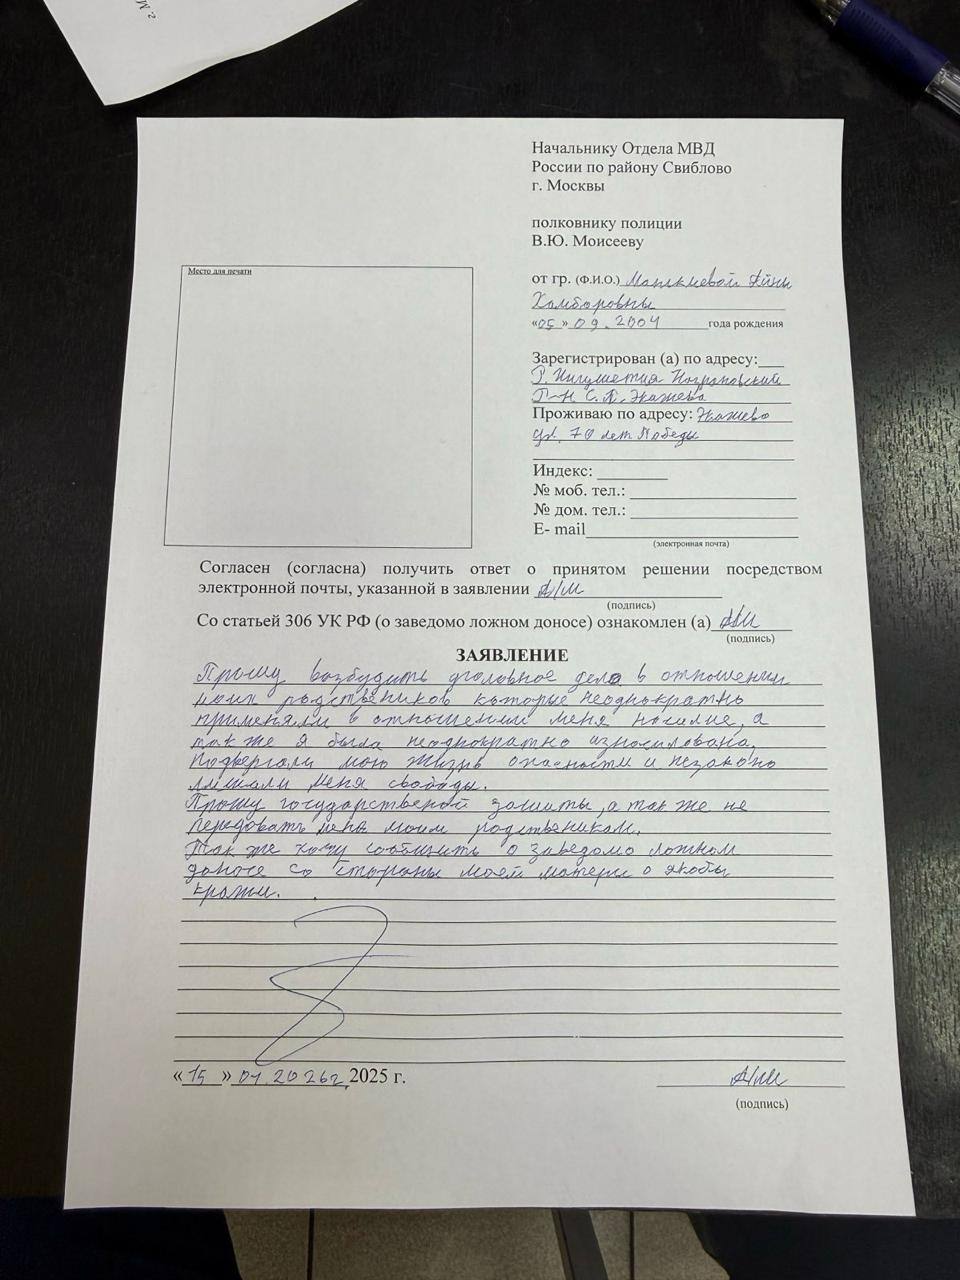 Начальнику Отдела МВД
России по району Свиблово
г. Москвы
полковнику полиции
В.Ю. Моисееву
Место для печати
от гр. (Ф.И.О.) Манкиевой Айны
Хамборовны
«05» 09.2004 года рождения
Зарегистрирован (а) по адресу:
Р. Ингушетия Назрановский
Р-Н С.П. Экажево
Проживаю по адресу: Экажево
ул. 70 лет Победы
Индекс:
№ моб. тел.:
№ дом. тел.:
Е- mail
(электронная почта)
Согласен (согласна) получить ответ о принятом решении посредством
электронной почты, указанной в заявлении А/М
(подпись)
Со статьей 306 УК РФ (о заведомо ложном доносе) ознакомлен (а) А/М
(подпись)
ЗАЯВЛЕНИЕ
Прошу возбудить уголовное дело в отношении
моих родственников которые неоднократно
применяли в отношении меня насилие, а
так же я была неоднократно изнасилована.
Подвергали мою жизнь опасности и незаконо
лишали меня свободы.
Прошу государственой защиты, а так же не
передовать меня моим родственикам.
Так же хочу сообщить о заведомо ложном
доносе со стороны моей матери о якобы
кражи.
«15» 01.2026г. 2025 г.
А/М
(подпись)